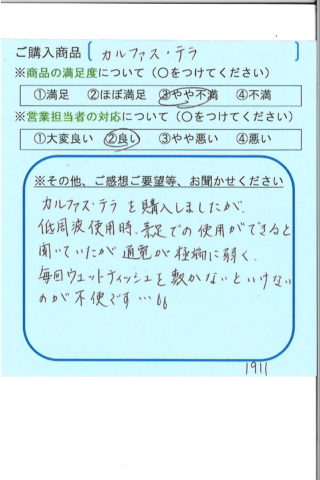 ご購入商品 カルファス・テラ
※商品の満足度について（○をつけてください）
①満足 ②ほぼ満足 ③やや不満 ④不満
※営業担当者の対応について（○をつけてください）
①大変良い ②良い ③やや悪い ④悪い
※その他、ご感想ご要望等、お聞かせください
カルファス・テラを購入しましたが、
低周波使用時、素足での使用ができると
聞いていたが通電が極端に弱く、
毎回ウェットティッシュを敷かないといけない
のが不便です…
1911